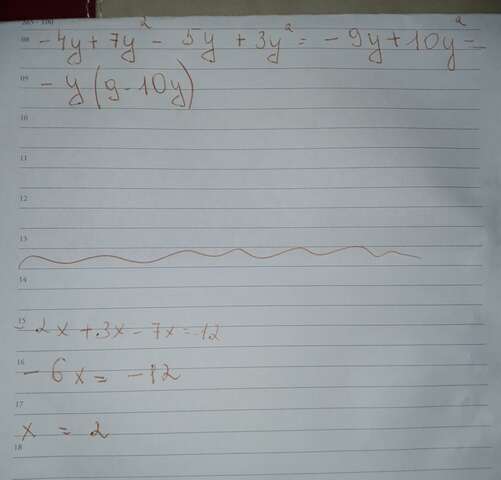 08 -4y + 7y² - 5y + 3y² = -9y + 10y² =
09 -y(9-10y)
10
11
12
13
14
15 -2x + 3x - 7x = -12
16 -6x = -12
17
x = 2
18